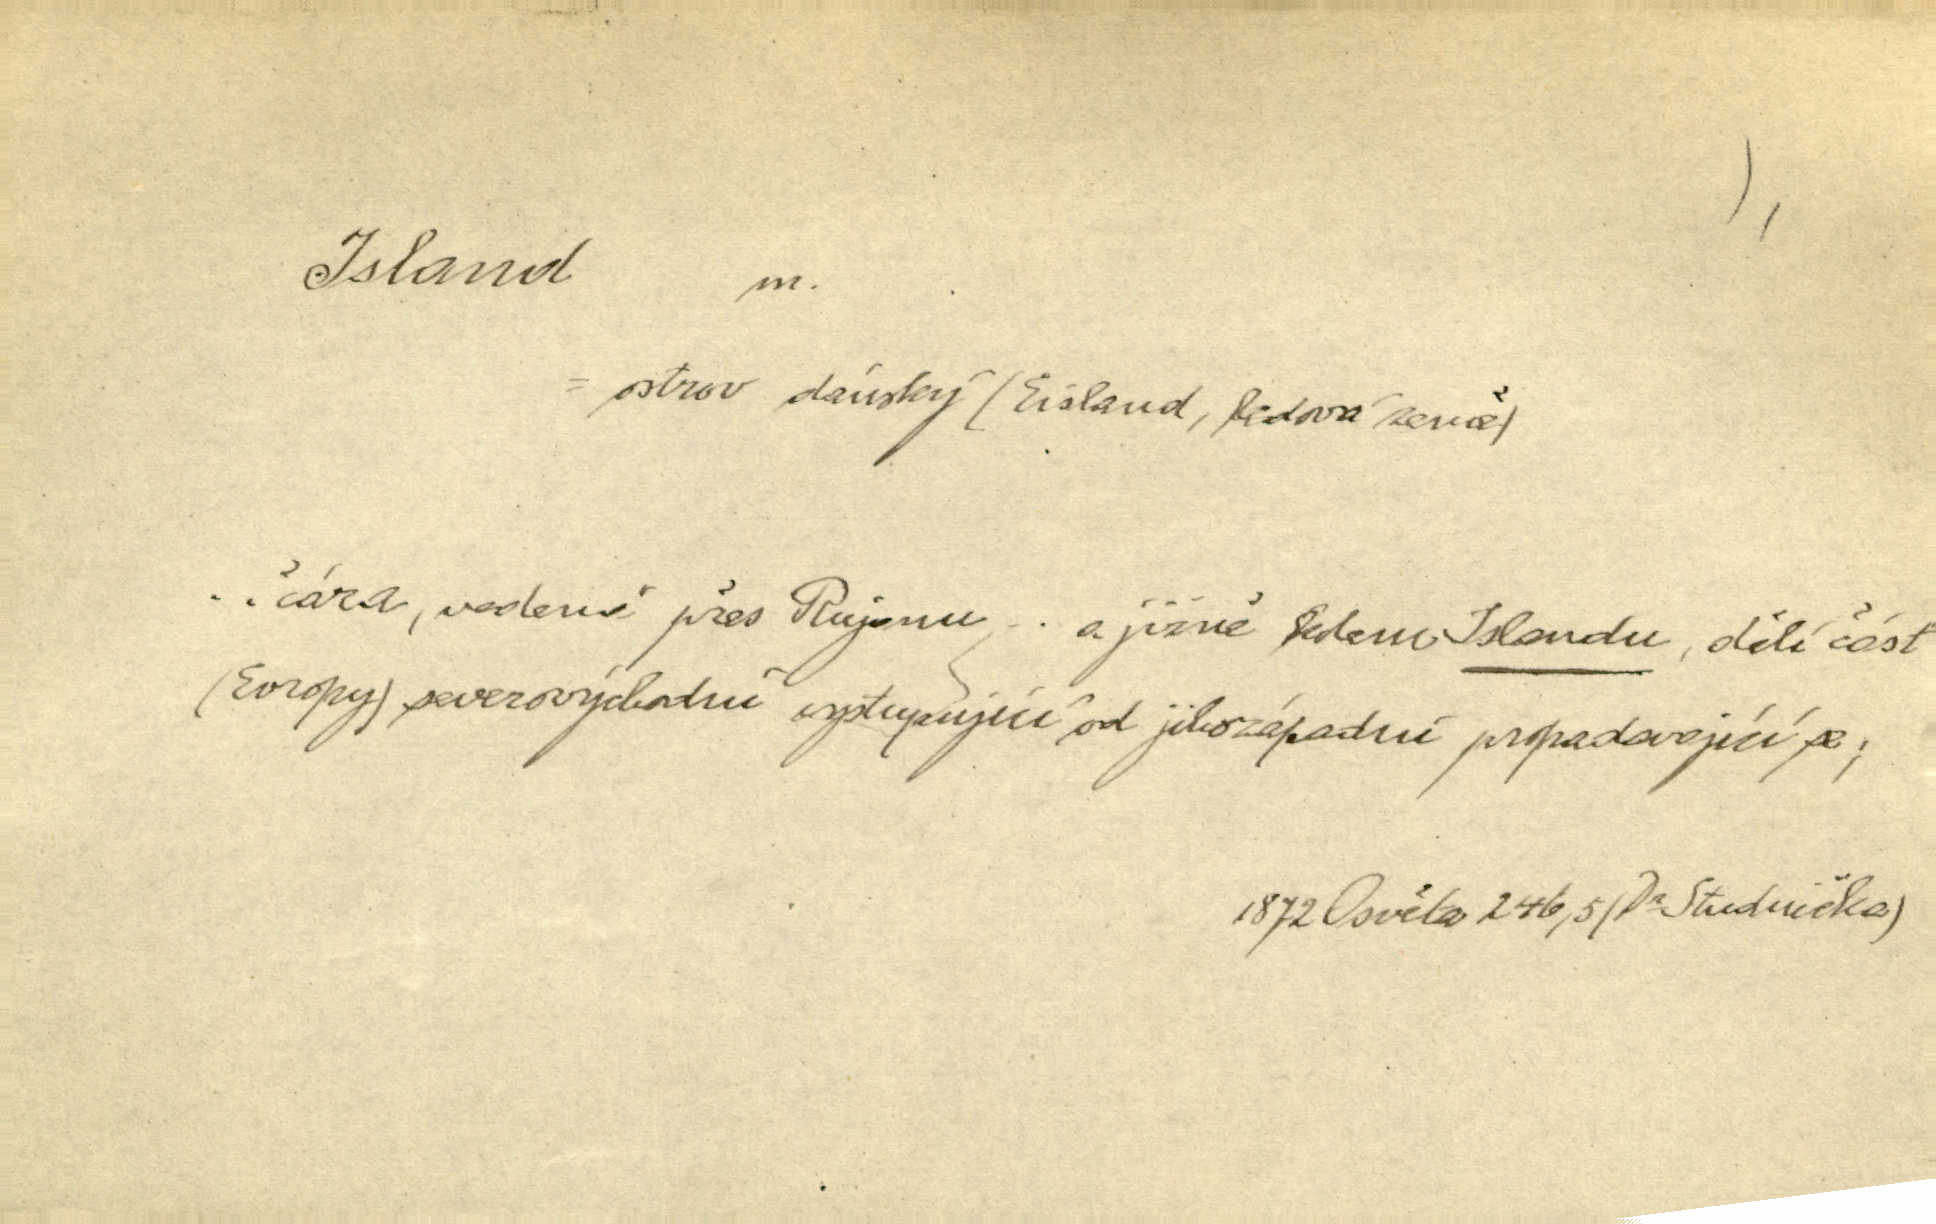 Island m.
= ostrov dánský (Eisland, ledová země)
.. čára, vedená přes Rujanu, .. a jižně kolem Islandu, dělí část
(Evropy) severovýchodní vystupující od jihozápadní propadavající se;
1872 Osvěta 246,5 (Dr Studnička)